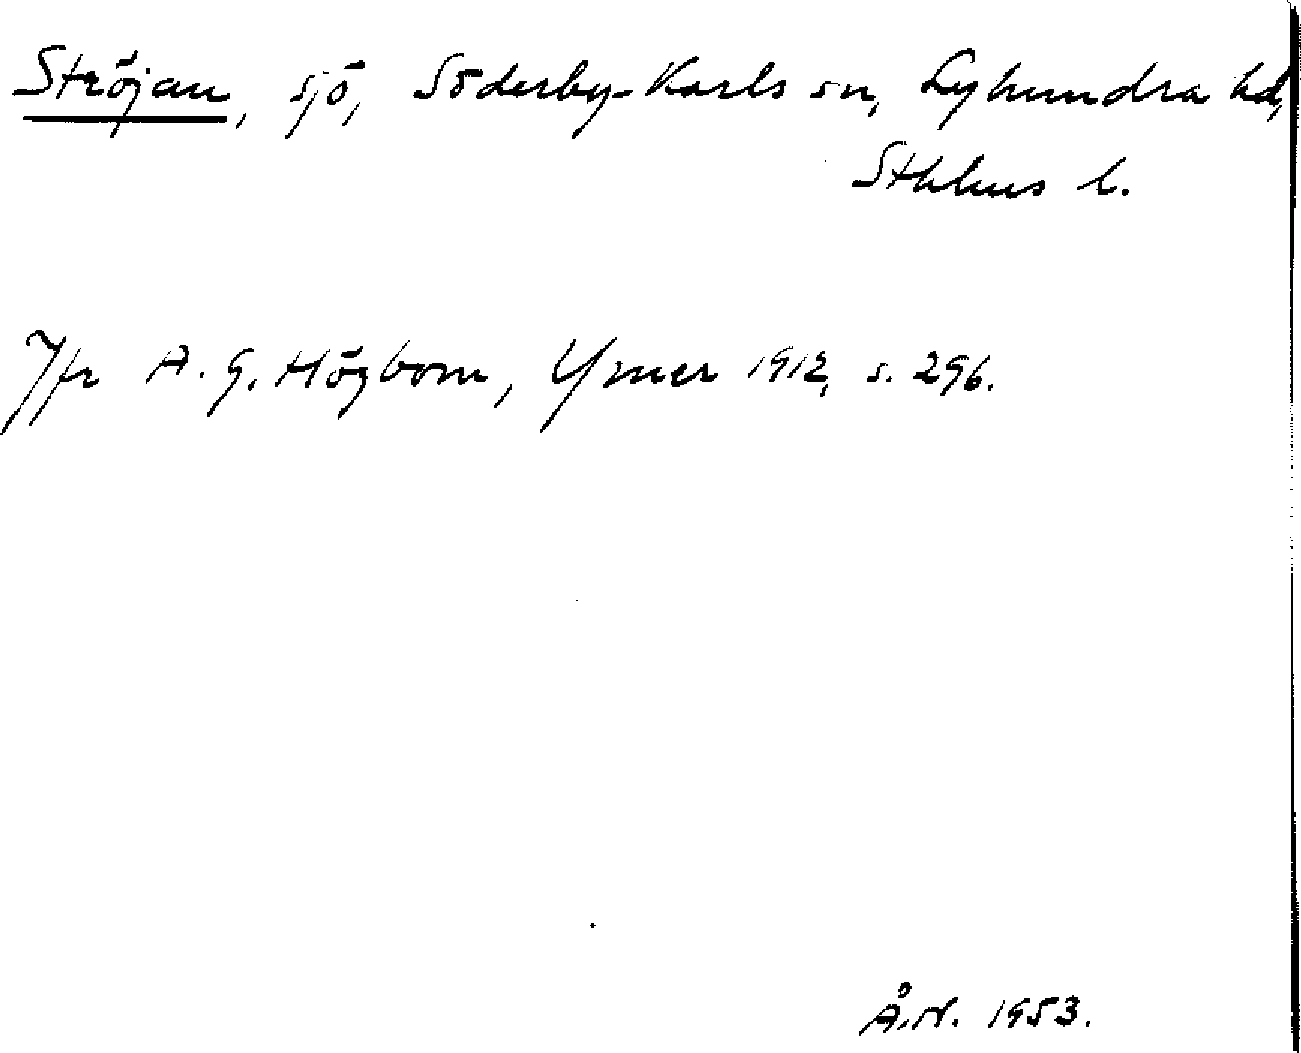 Ströjan, sjö, Söderby-Karls sn, Lyhundra hd,
Sthlms l.
Jfr A. G. Högbom, Ymer 1912, s. 296.
Å.N. 1953.